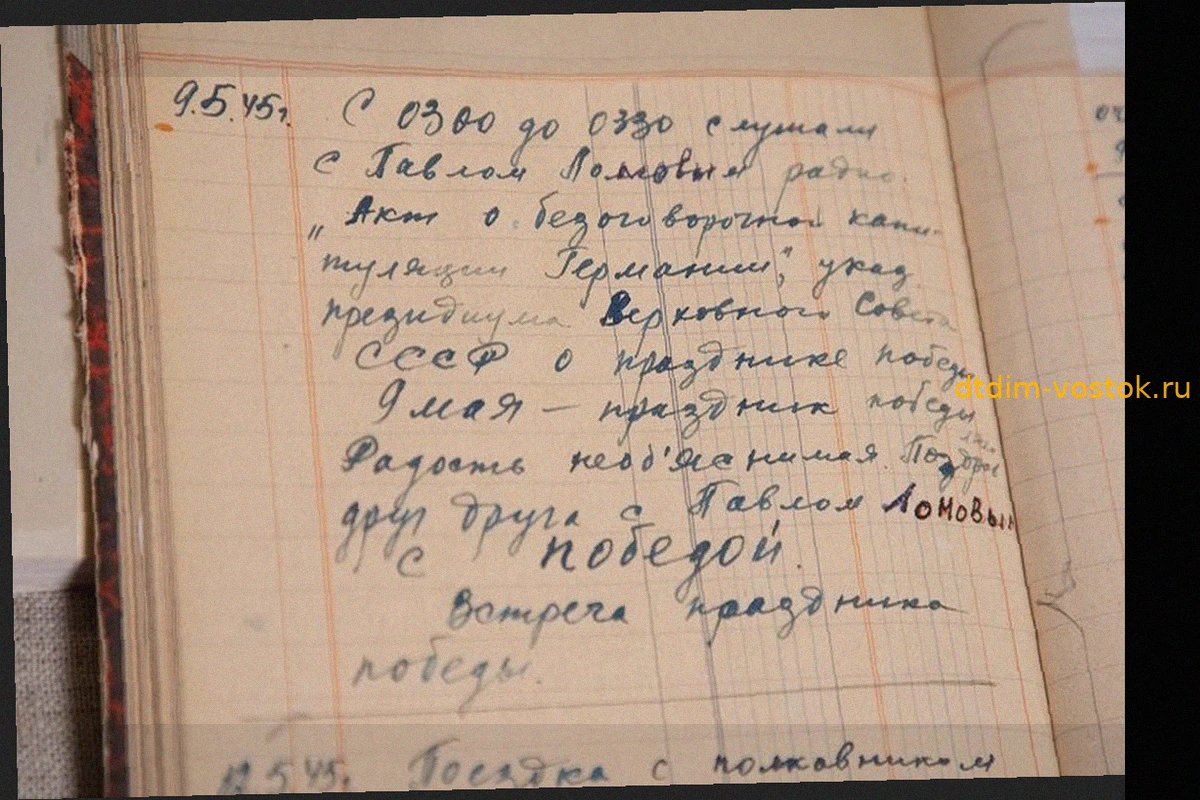 9.5.45г. С 0300 до 0330 слушали
с Павлом Ломовым радио.
„Акт о безоговорочной капи-
туляции Германии", указ
президиума Верховного Совета
СССР о празднике победы
dtdim-vostok.ru
9 мая — праздник победы
Радость необ'яснимая. Поздрав
друг друга с Павлом Ломовым
с победой.
Встреча праздника
победы.
12.5.45. Поездка с полковником